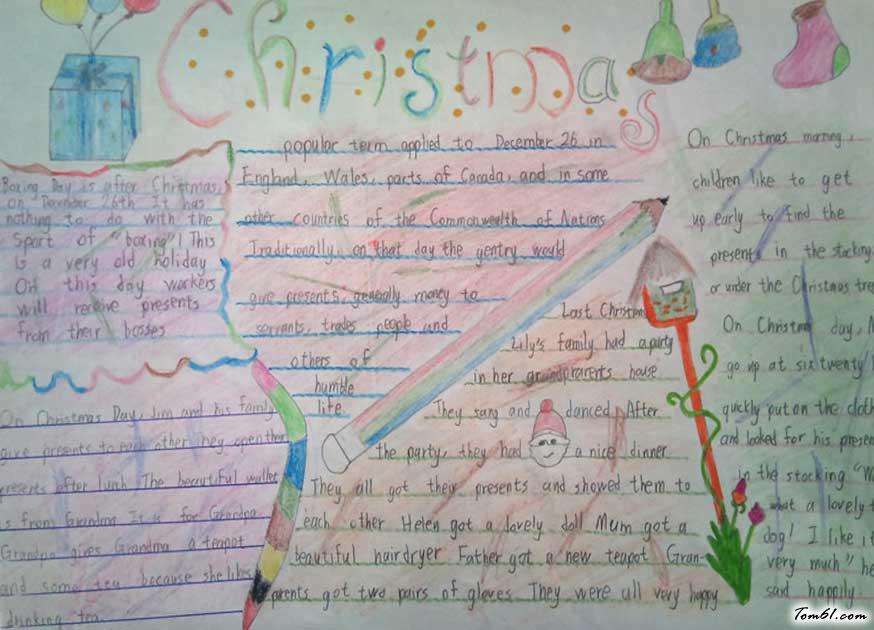 Christmas
Boxing Day is after Christmas,
on December 26th It has
nothing to do with the
sport of "boxing"! This
is a very old holiday
On this day workers
will receive presents
from their bosses
popular term applied to December 26 in
England, Wales, parts of Canada, and in some
other countries of the Commonwealth of Nations
Traditionally, on that day the gentry would
give presents, generally money to
servants, trades people and
others of
humble
life
On Christmas Day, Jim and his family
give presents to each other They open their
presents after lunch The beautiful wallet
is from Grandma It is for Grandpa
Grandpa gives Grandma a teapot
and some tea because she likes
drinking tea
Last Christmas
Lily's family had a party
in her grandparents house
They sang and danced After
the party, they had a nice dinner
They all got their presents and showed them to
each other Helen got a lovely doll Mum got a
beautiful hairdryer Father got a new teapot Gran-
parents got two pairs of gloves They were all very happy
On Christmas morning,
children like to get
up early to find the
presents in the stocking
or under the Christmas tree
On Christmas day,
go up at six twenty
quickly put on the cloth
and looked for his presen
in the stocking "W
what a lovely
dog! I like it
very much" he
said happily
Tom61.com